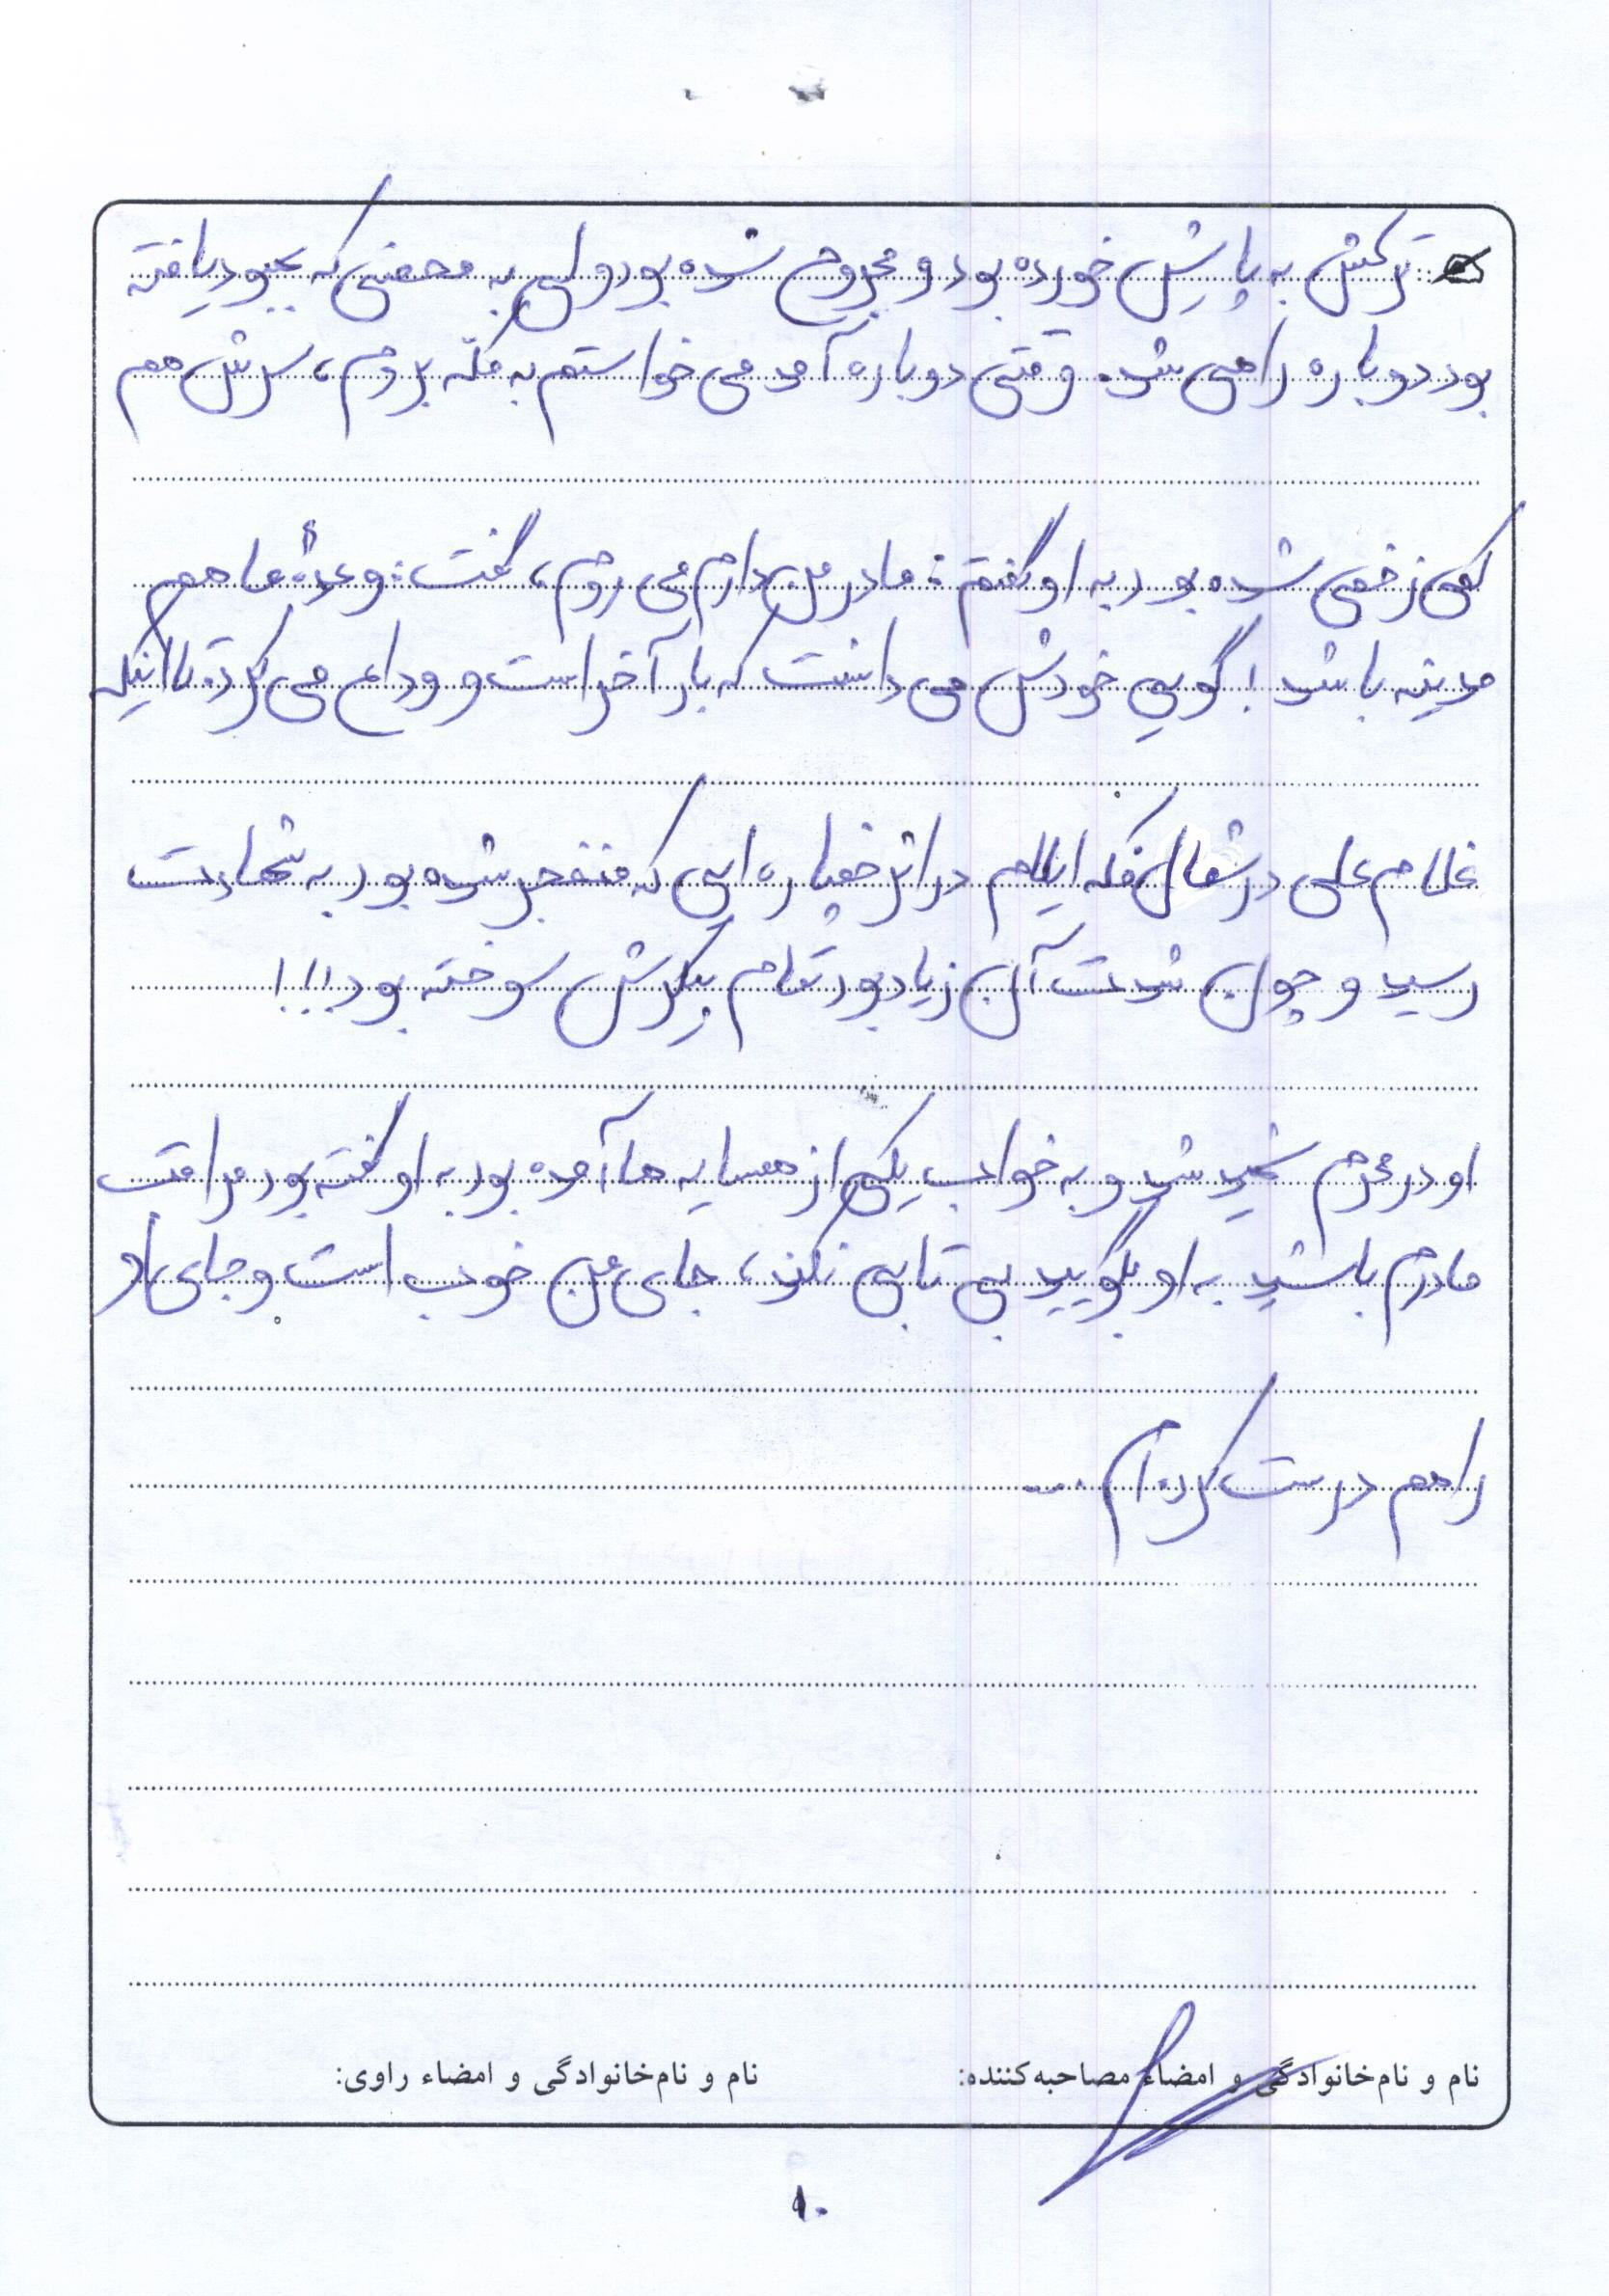 ترکش به پایش خورده بود و مجروح شده بود ولی به محضی که بهبود یافته
بود دوباره راهی شد. وقتی دوباره آمد می خواستم به مکّه بروم، سرش هم
کمی زخمی شده بود به او گفتم: مادر من دارم می روم، گفت: وعدهٔ ما هم
مدینه باشد! گویی خودش می دانست که بار آخر است و وداع می کرد. تا اینکه
غلامعلی در شمال فکه ایلام در اثر خمپاره ایی که منفجر شده بود به شهادت
رسید و چون شدت آن زیاد بود تمام پیکرش سوخته بود!!!
او در محرم شهید شد و به خواب یکی از همسایه ها آمده بود به او گفته بود مراقب
مادرم باشید به او بگویید بی تابی نکند، جای من خوب است و جای او
را هم درست کرده ام ...
نام و نام‌خانوادگی و امضاء مصاحبه‌کننده:
نام و نام‌خانوادگی و امضاء راوی:
۱۰